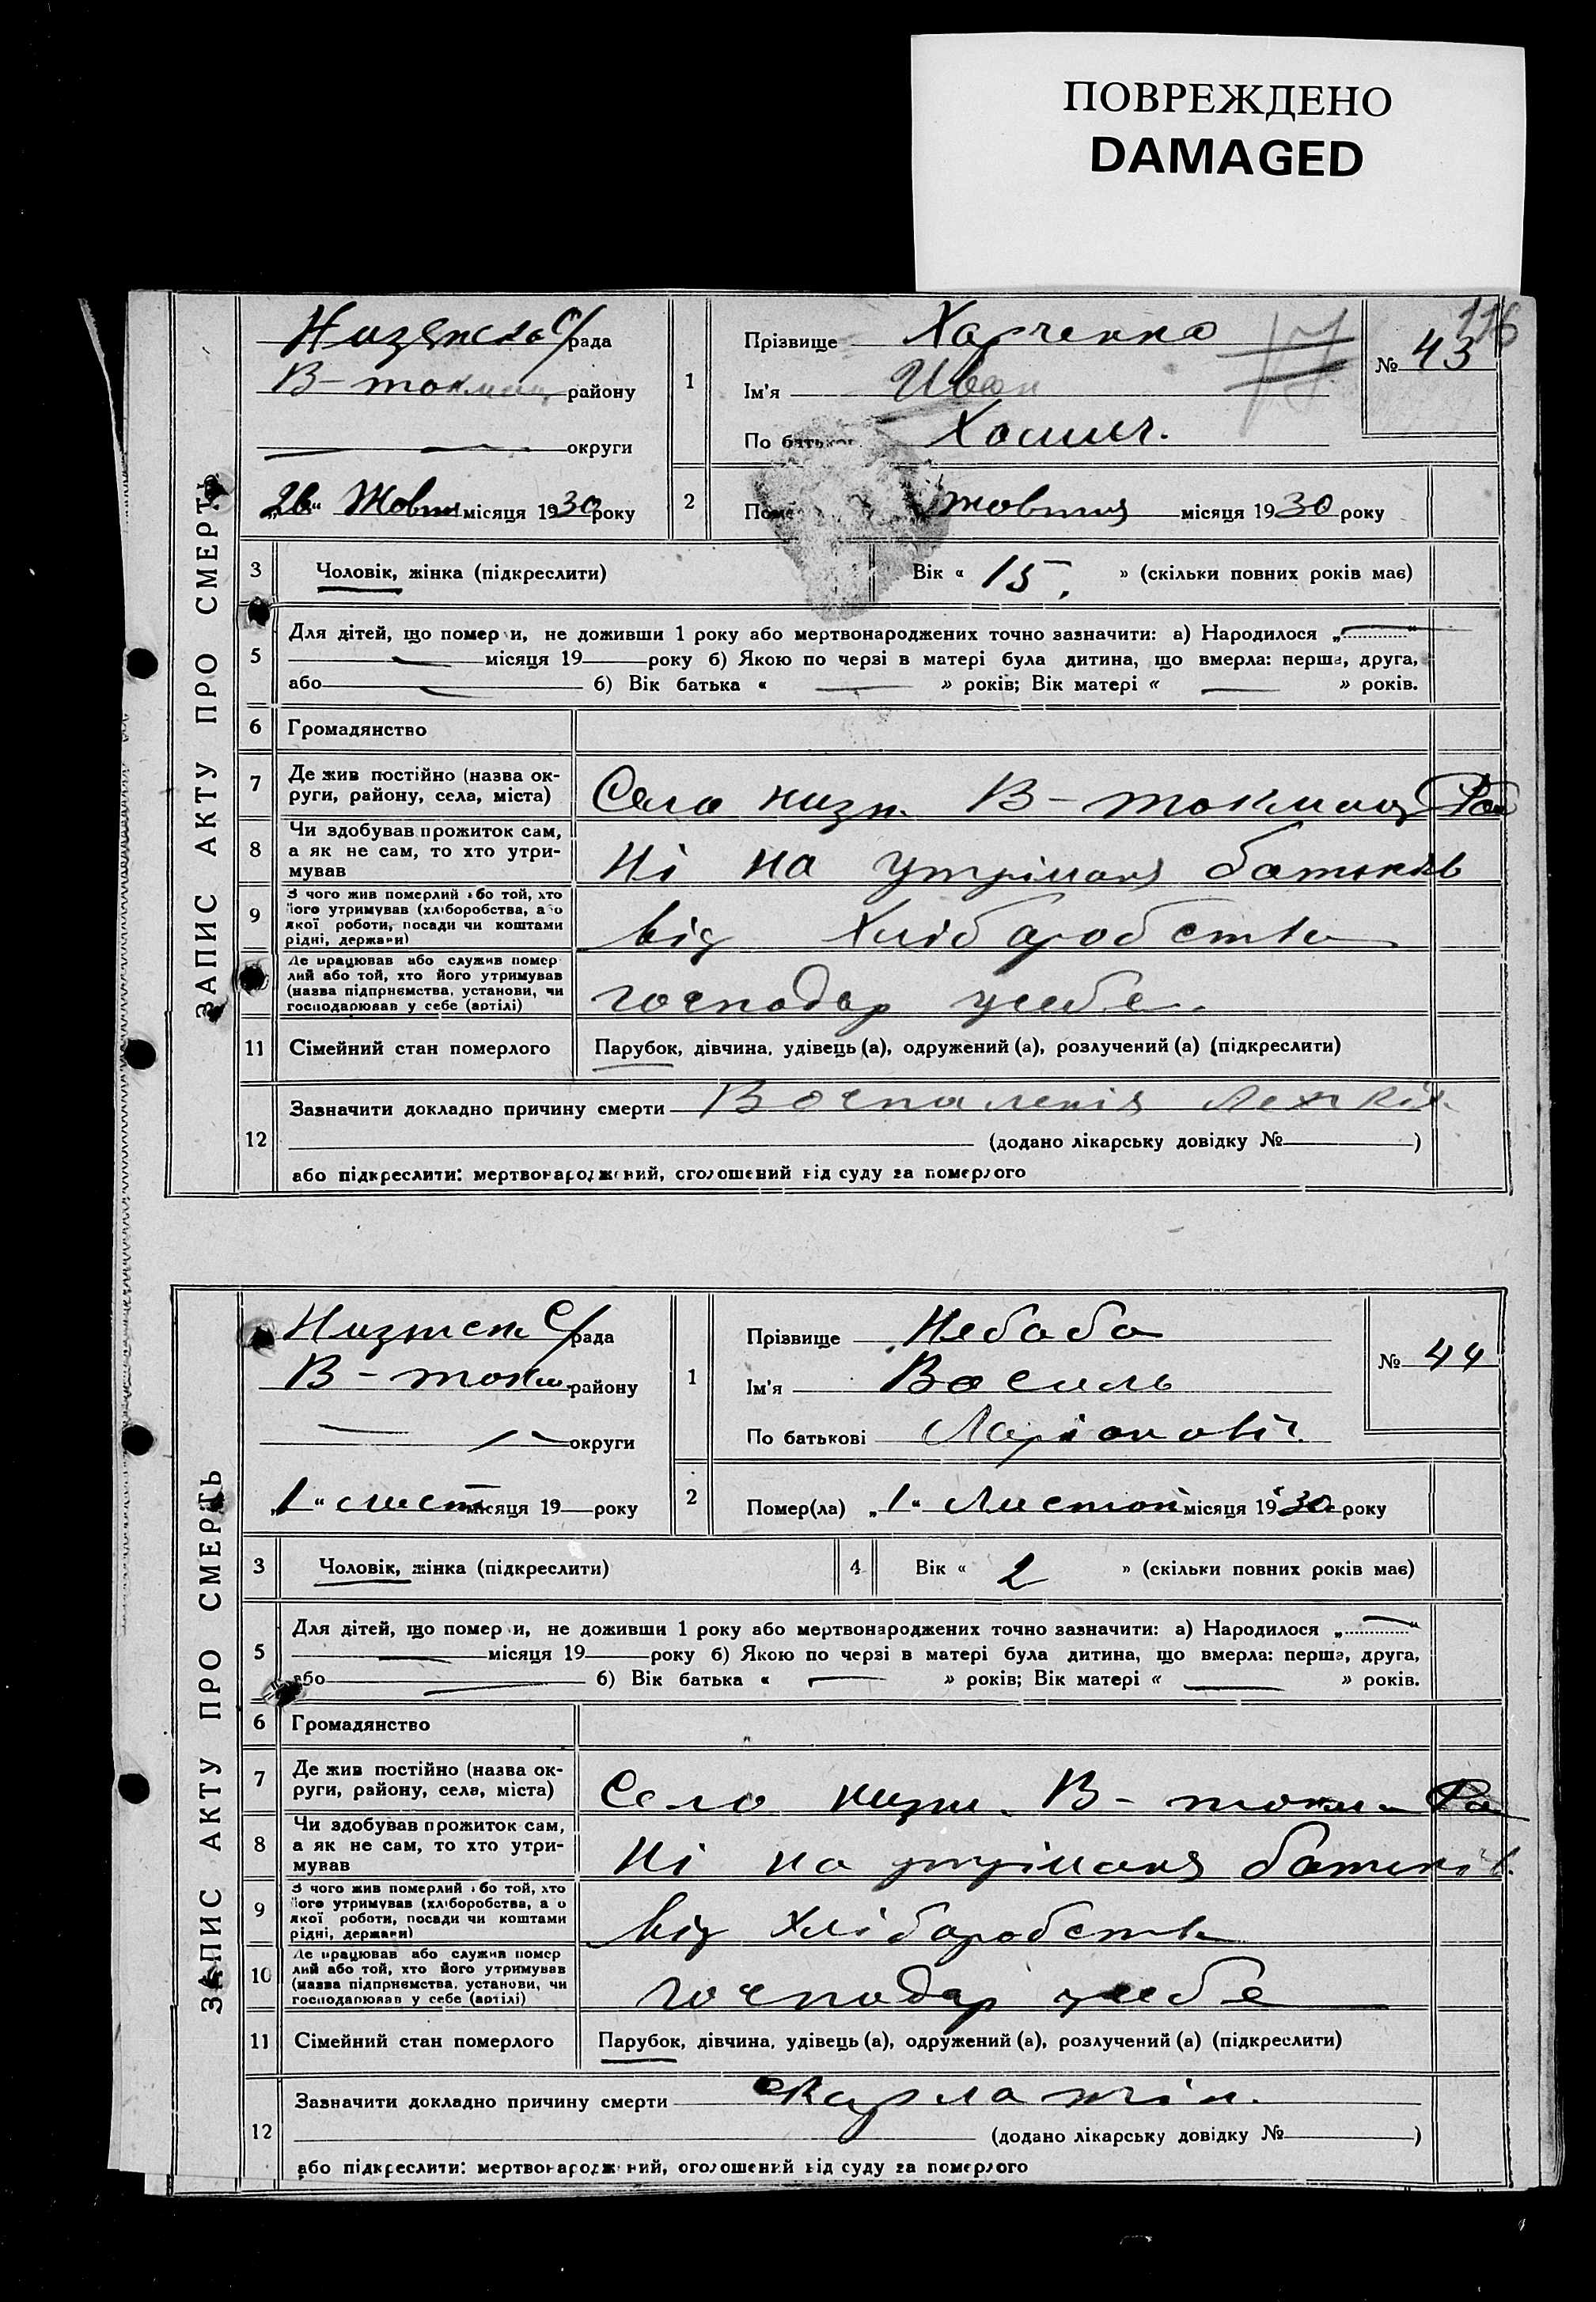 ПОВРЕЖДЕНО
DAMAGED
116
ЗАПИС АКТУ ПРО СМЕРТЬ
с/рада
В-токмац району
округи
„26“ Жовтня місяця 1930 року
1 Прізвище Харченко
Ім'я Иван
По батькові Хомич.
№ 43
17
2 Поме Жовтня місяця 1930 року
3 Чоловік, жінка (підкреслити)
Вік « 15. » (скільки повних років має)
5 Для дітей, що померли, не доживши 1 року або мертвонароджених точно зазначити: а) Народилося „ “
місяця 19 року б) Якою по черзі в матері була дитина, що вмерла: перша, друга,
або б) Вік батька « » років; Вік матері « » років.
6 Громадянство
7 Де жив постійно (назва округи, району, села, міста) Село низян. В-токмац Рай
8 Чи здобував прожиток сам, а як не сам, то хто утримував Ні на утріманя батьків
9 З чого жив померлий або той, хто його утримував (хліборобства, або якої роботи, посади чи коштами рідні, держави) від Хліборобства
Де працював або служив помер лий або той, хто його утримував (назва підприємства, установи, чи господарював у себе (артілі) господар усебе.
11 Сімейний стан померлого Парубок, дівчина, удівець (а), одружений (а), розлучений (а) (підкреслити)
12 Зазначити докладно причину смерти Воспаления Лехких.
(додано лікарську довідку № )
або підкреслити: мертвонароджений, оголошений від суду за померлого
ЗАПИС АКТУ ПРО СМЕРТЬ
с/рада
В-токм. району
округи
„1“ лист місяця 19 року
1 Прізвище Небаба
Ім'я Василь
По батькові Ларіоновіч.
№ 44
2 Помер(ла) „1“ Листоп місяця 1930 року
3 Чоловік, жінка (підкреслити)
4 Вік « 2 » (скільки повних років має)
5 Для дітей, що померли, не доживши 1 року або мертвонароджених точно зазначити: а) Народилося „ “
місяця 19 року б) Якою по черзі в матері була дитина, що вмерла: перша, друга,
або б) Вік батька « » років; Вік матері « » років.
6 Громадянство
7 Де жив постійно (назва округи, району, села, міста) Село низян. В-токм Ра
8 Чи здобував прожиток сам, а як не сам, то хто утримував Ні на утріманя батьків.
9 З чого жив померлий або той, хто його утримував (хліборобства, або якої роботи, посади чи коштами рідні, держави) від Хліборобств
10 Де працював або служив помер лий або той, хто його утримував (назва підприємства, установи, чи господарював у себе (артілі) господар усебе
11 Сімейний стан померлого Парубок, дівчина, удівець (а), одружений (а), розлучений (а) (підкреслити)
12 Зазначити докладно причину смерти
(додано лікарську довідку № )
або підкреслити: мертвонароджений, оголошений від суду за померлого